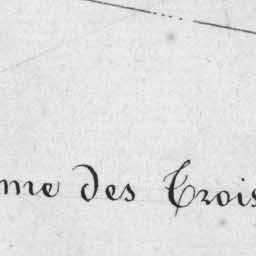 me des Trois